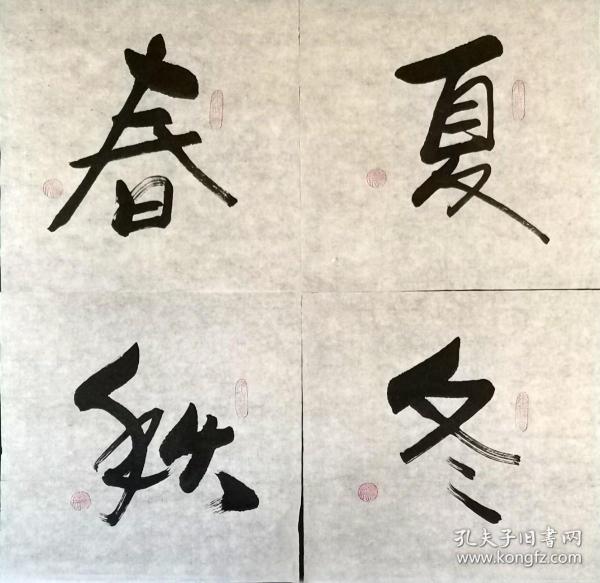 春
夏
秋
冬
孔夫子旧书网
www.kongfz.com